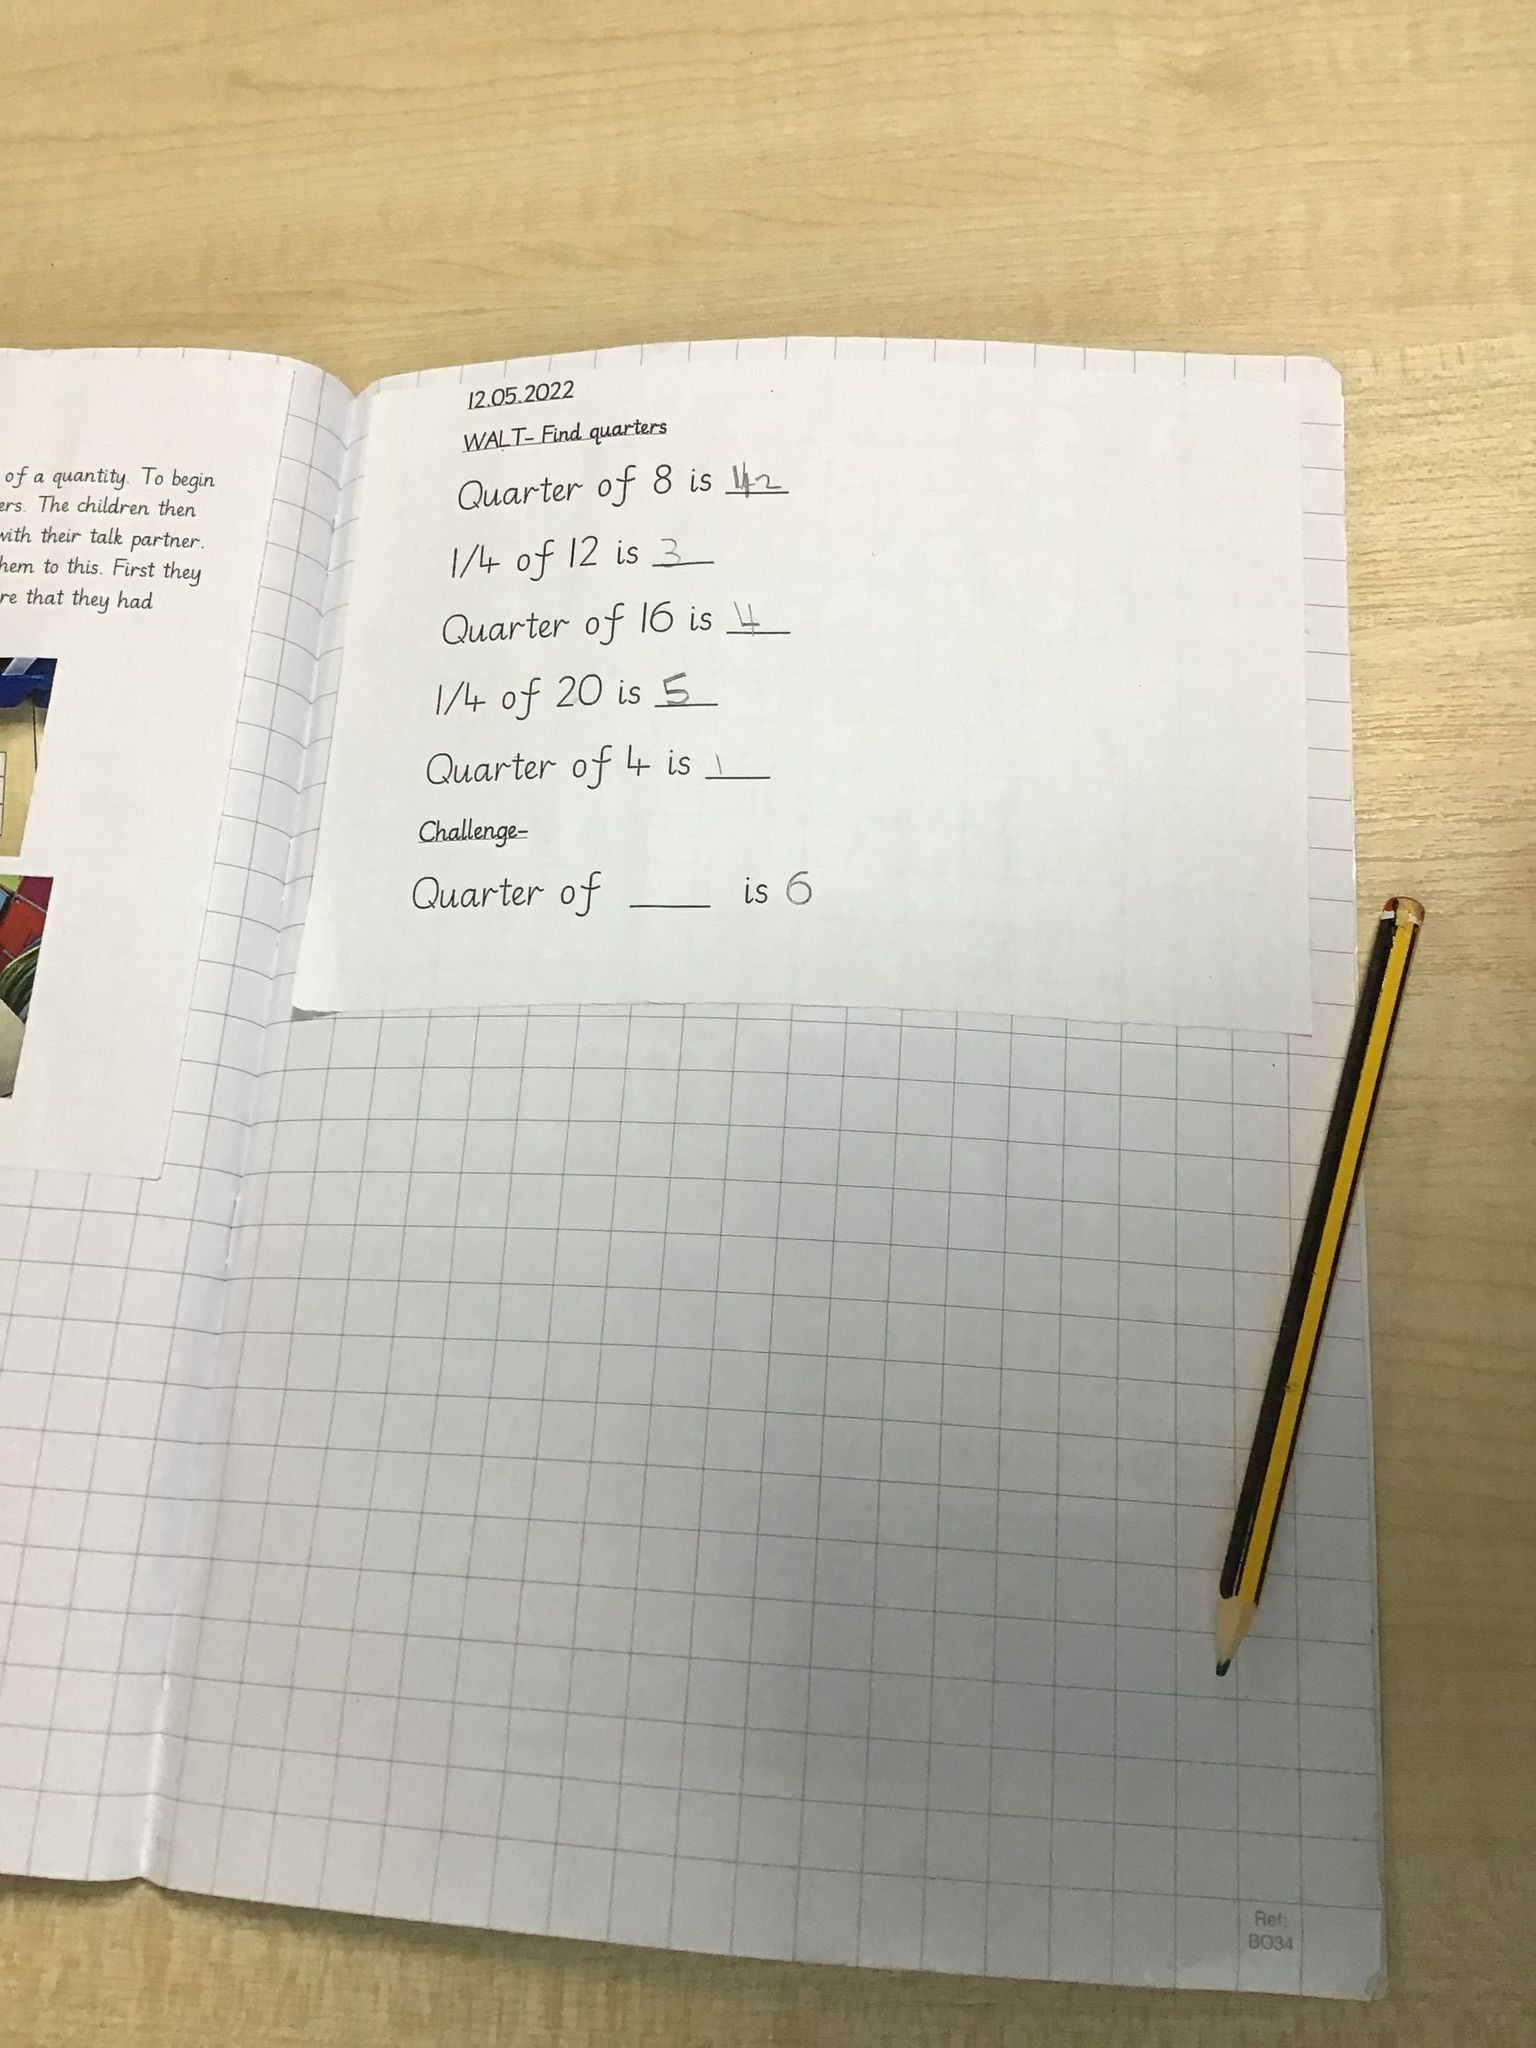 of a quantity. To begin
ers. The children then
with their talk partner.
hem to this. First they
re that they had
12.05.2022
WALT- Find quarters
Quarter of 8 is 2
1/4 of 12 is 3
Quarter of 16 is 4
1/4 of 20 is 5
Quarter of 4 is 1
Challenge-
Quarter of ____ is 6
Ref:
BO34